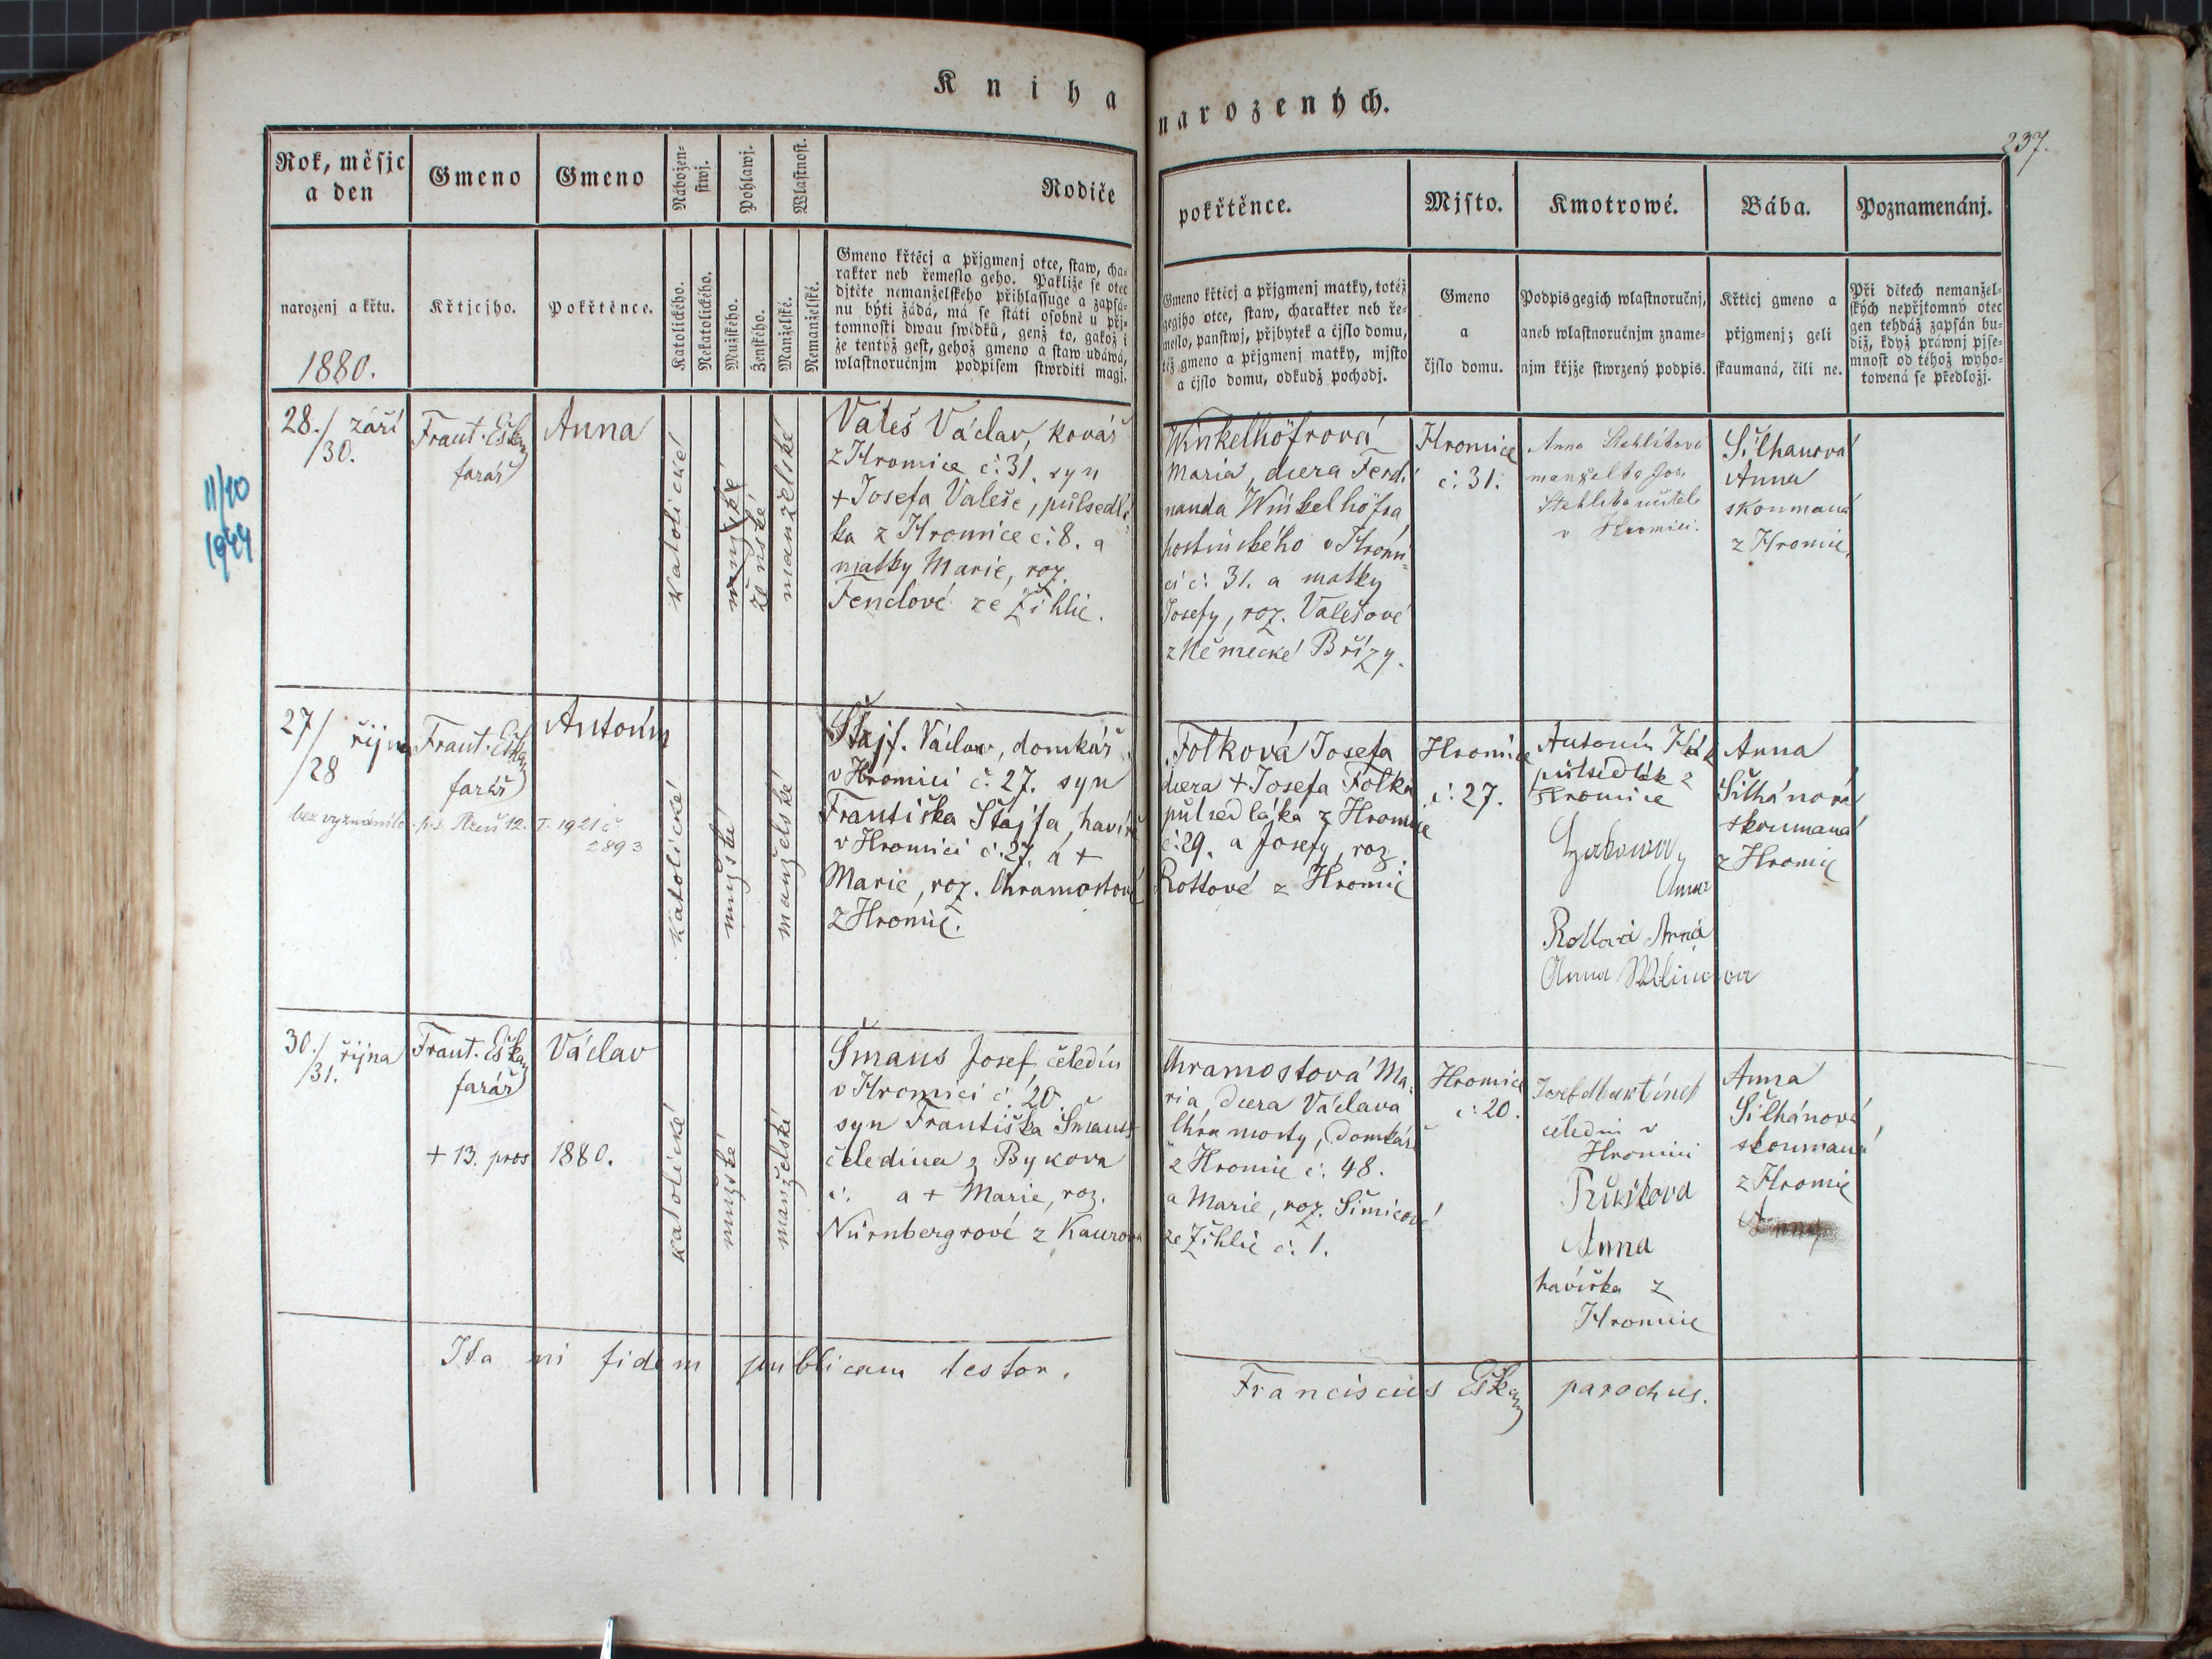 Kniha narozených.
237.
Rok, měsjc a den
Gmeno
Gmeno
Nábožen=stwj.
Pohlawj.
Wlastnost.
Rodiče
pokřtěnce.
Mjsto.
Kmotrowé.
Bába.
Poznamenánj.
narozenj a křtu.
1880.
Křtjcjho.
Pokřtěnce.
Katolického.
Nekatolického.
Mužského.
Ženského.
Manželské.
Nemanželské.
Gmeno křtěcj a přjgmenj otce, staw, cha=
rakter neb řemeslo geho. Pakliže se otec
djtěte nemanželského přihlassuge a zapsá=
nu býti žádá, má se státi osobně u přj=
tomnosti dwau swědků, genž to, gakož i
že tentýž gest, gehož gmeno a staw udáwá,
wlastnoručnjm podpisem stwrditi magj.
Gmeno křtěcj a přjgmenj matky, totéž
gegjho otce, staw, charakter neb ře=
meslo, panstwj, přjbytek a čjslo domu,
též gmeno a přjgmenj matky, mjsto
a čjslo domu, odkudž pochodj.
Gmeno
a
čjslo domu.
Podpis gegich wlastnoručnj,
aneb wlastnoručnjm zname=
njm křjže stwrzený podpis.
Křtěcj gmeno a
přjgmenj; geli
skaumaná, čili ne.
Při dětech nemanžel=
ských nepřjtomný otec
gen tehdáž zapsán bu=
diž, když práwnj pjse=
mnost od téhož wyho=
towená se předložj.
11/10
1944
28./ září
/30.
Frant. Eška
farář
Anna
katolické
mužské
ženské
manželské
Valeš Václav, kovář
z Hromice č: 31. syn
+ Josefa Valeše, půlsedlá
ka z Hromice č: 8. a
matky Marie, roz.
Fendové ze Žihlic.
Winkelhöfrová
Maria, dcera Ferdi
nanda Winkelhöfra
hostinského v Hromi=
ci č: 31. a matky
Josefy, roz. Valešové
z Německé Břízy.
Hromice
č: 31.
Anna Stehlíkova
manželka Jos.
Stehlika učitele
v Hromici.
Šilhanová
Anna
skoumaná
z Hromic
27/ října
/28
Frant. Eška
farář
Antonín
bez vyznání
12. I. 1921 č
2893
katolické
mužské
manželské
Štajf. Václav, domkář
v Hromici č. 27. syn
Františka Štajfa, havíře
v Hromici č: 27. a +
Marie, roz. Chramostové
z Hromic.
Folková Josefa
dcera + Josefa Folka
půlsedláka z Hromice
č: 29. a Josefy, roz.
Rottové z Hromic
Hromice
č: 27.
Antonín
půlsedlák z
Hromice
Anna
Rottová Anna
Anna
Anna
Šilhánová
skoumaná
z Hromic
30./ října
/31.
Frant. Eška
farář
Václav
+ 13. pros 1880.
katolické
mužské
manželské
Šmaus Josef čeledín
v Hromici č. 20
syn Františka Šmausa
čeledína z Bykova
č. a + Marie, roz.
Nürnbergrové z Kaurova
Chramostová Ma=
ria, dcera Václava
Chramosty, domkáře
z Hromic č: 48.
a Marie, roz. Šimicové
ze Žihlic č: 1.
Hromice
č: 20.
Josef Martínek
čeledín v
Hromici
Průšova
Anna
havířka z
Hromice
Anna
Šilhánová
skoumaná
z Hromic
Ita in fidem publicam testor.
Franciscus Eška parochus.